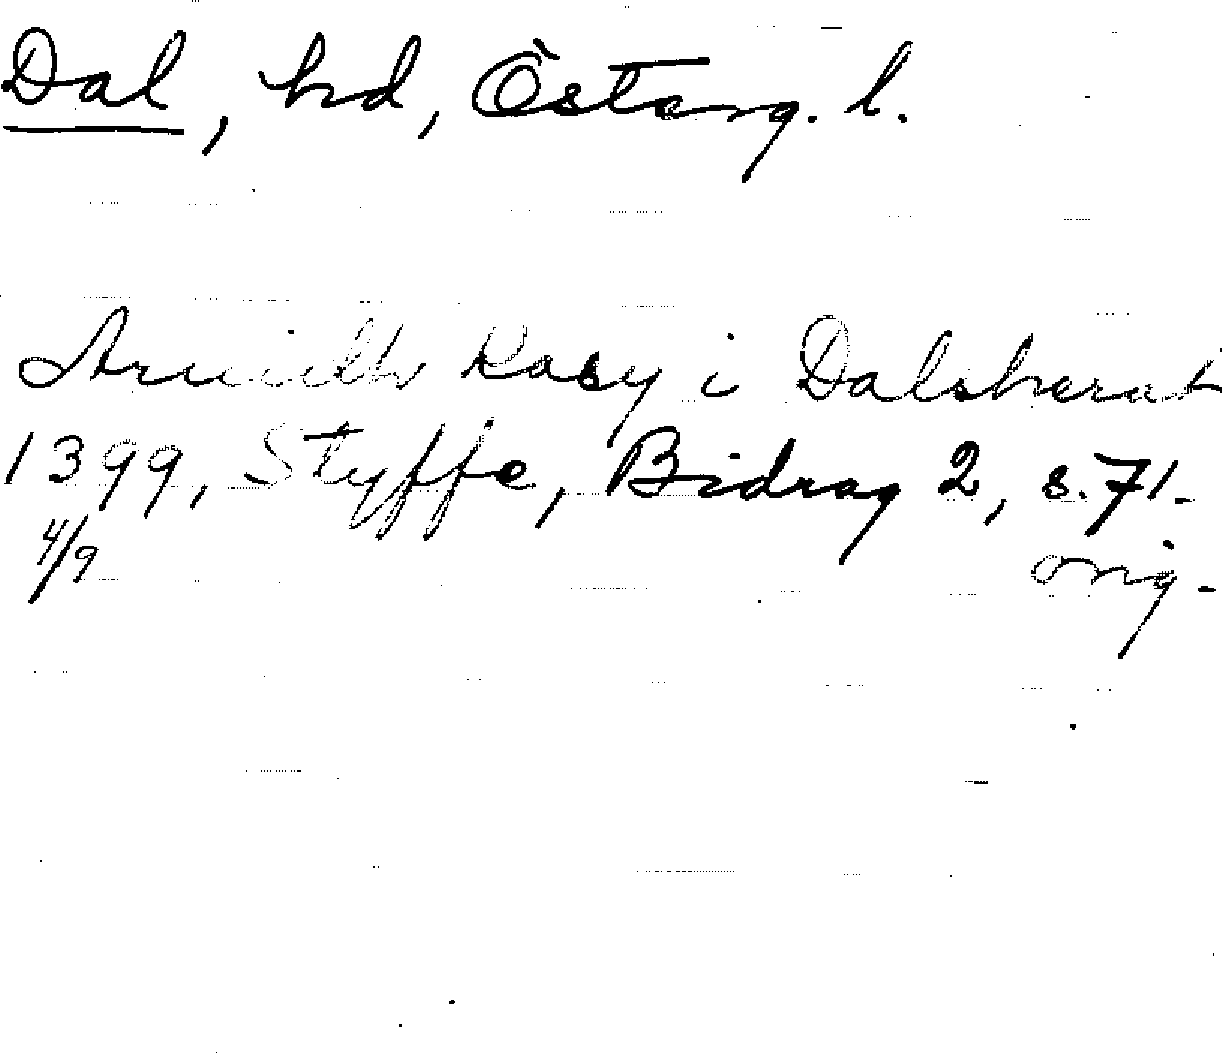 Dal, hd, Österg. l.
Kasy i Dalsherat
1399, Styffe, Bidrag 2, s. 71.
4/9
orig.